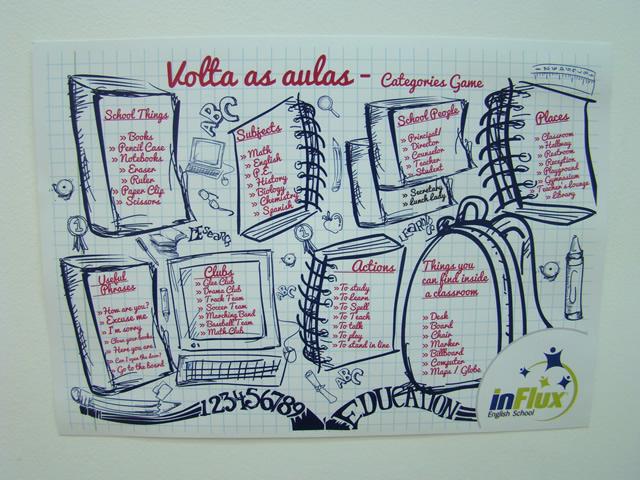 Volta as aulas - Categories Game
School Things
» Books
» Pencil Case
» Notebooks
» Eraser
» Ruler
» Paper Clip
» Scissors
ABC
Subjects
» Math
» English
» P.E.
» History
» Biology
» Chemistry
» Spanish
School People
» Principal/
Director
» Counselor
» Teacher
» Student
» Secretary
» Lunch lady
Places
» Classroom
» Hallway
» Restroom
» Reception
» Playground
» Gymnasium
» Teacher's lounge
» Library
Useful
Phrases
» How are you?
» Excuse me
» I'm sorry
» Close your books
» Here you are
» Can I open the door?
» Go to the board
Clubs
» Glee Club
» Drama Club
» Track Team
» Soccer Team
» Marching Band
» Baseball Team
» Math Club
ABC
Actions
» To study
» To learn
» To Spell
» To Teach
» To talk
» To play
» To stand in line
ABC
Things you
can find inside
a classroom
» Desk
» Board
» Chair
» Marker
» Billboard
» Computer
» Maps / Globe
123456789
EDUCATION
inFlux
English School